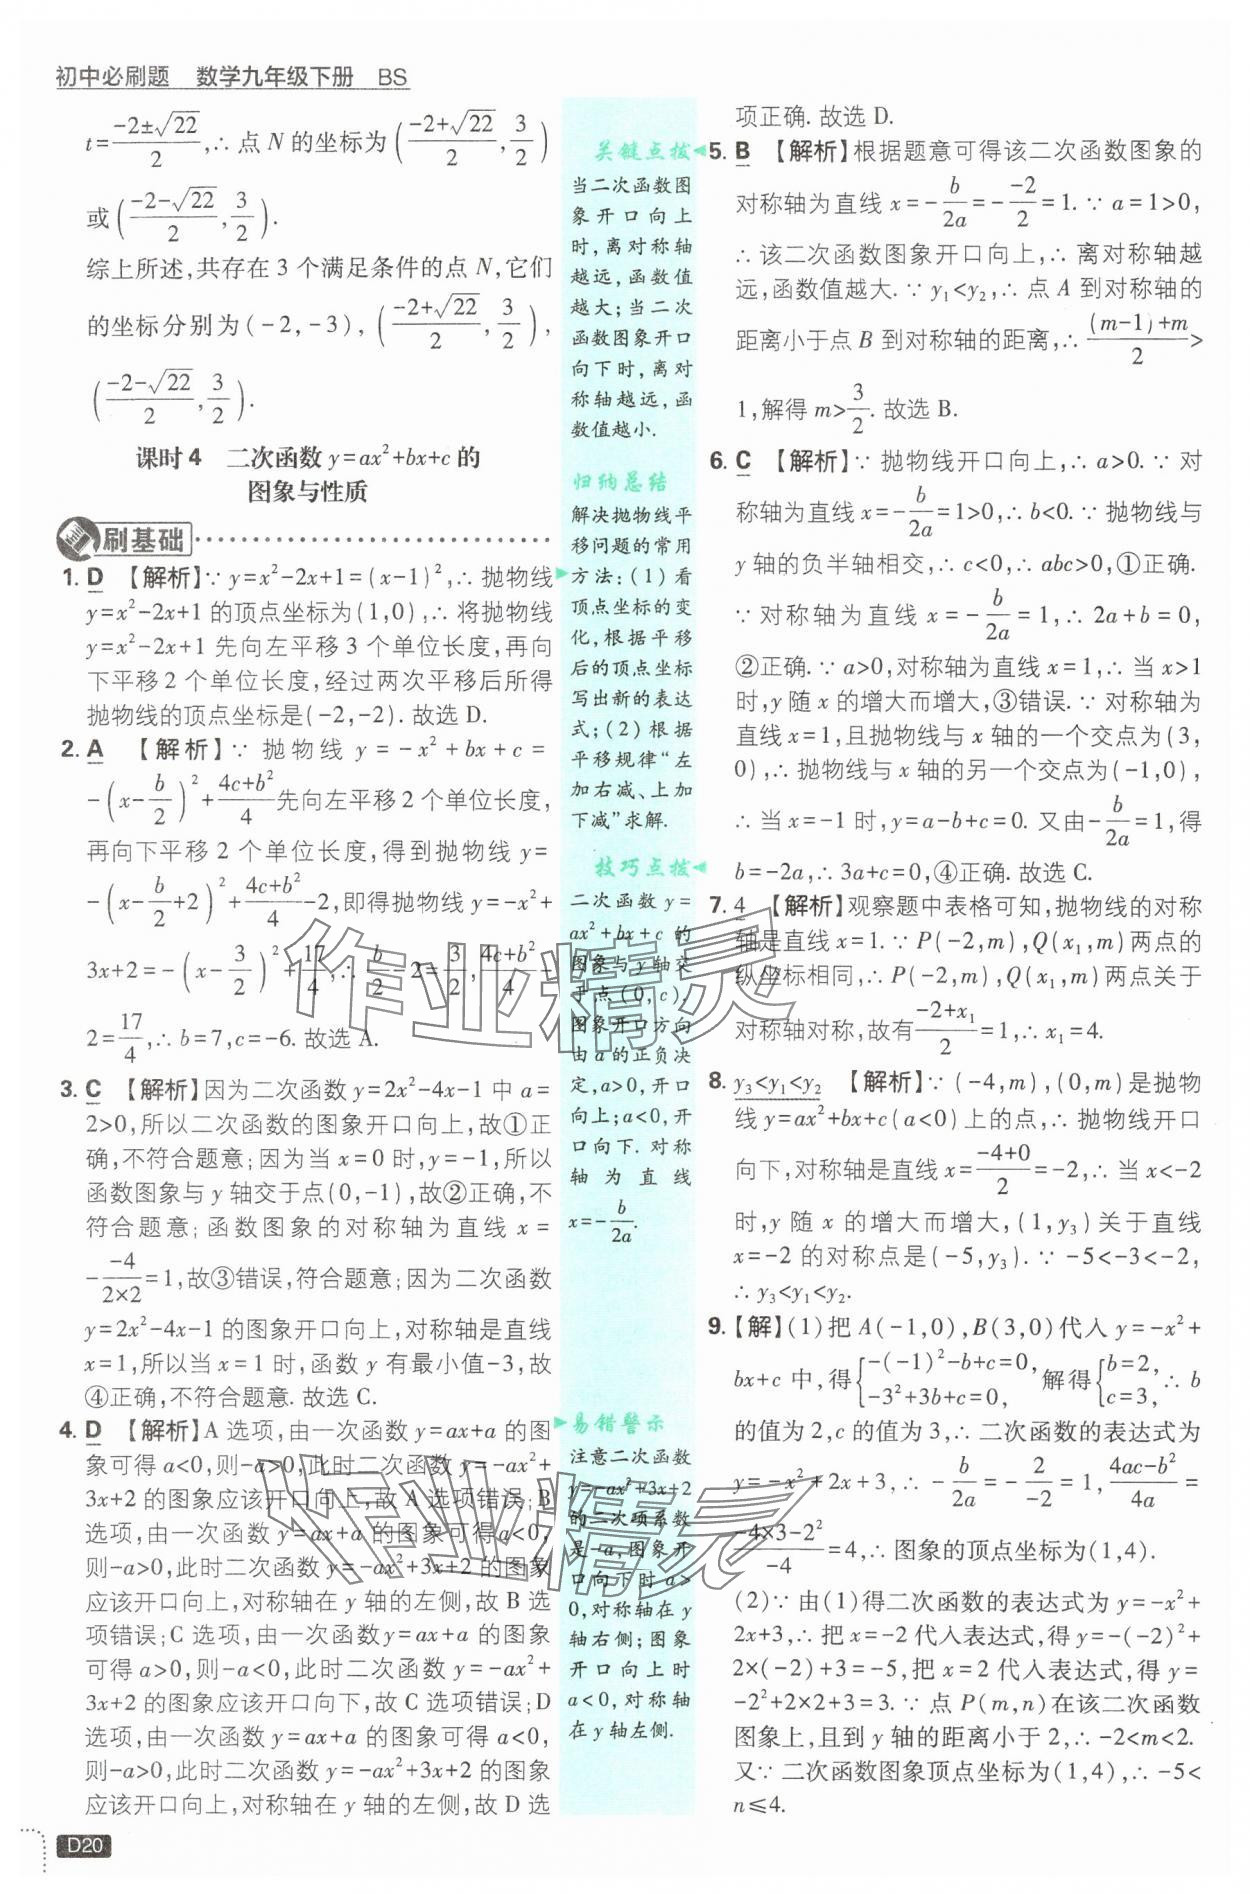 初中必刷题 数学九年级下册 BS
t=(-2±√22)/2,∴点N的坐标为((-2+√22)/2,3/2)
或((-2-√22)/2,3/2).
综上所述,共存在3个满足条件的点N,它们
的坐标分别为(-2,-3),((-2+√22)/2,3/2),
((-2-√22)/2,3/2).
课时4 二次函数y=ax²+bx+c的
图象与性质
刷基础
1. D 【解析】∵y=x²-2x+1=(x-1)²,∴抛物线
y=x²-2x+1的顶点坐标为(1,0),∴将抛物线
y=x²-2x+1先向左平移3个单位长度,再向
下平移2个单位长度,经过两次平移后所得
抛物线的顶点坐标是(-2,-2).故选D.
2. A 【解析】∵抛物线y=-x²+bx+c=
-(x-b/2)²+(4c+b²)/4先向左平移2个单位长度,
再向下平移2个单位长度,得到抛物线y=
-(x-b/2+2)²+(4c+b²)/4-2,即得抛物线y=-x²+
3x+2=-(x-3/2)²+17/4,∴b/2-2=3/2,(4c+b²)/4-
2=17/4,∴b=7,c=-6.故选A.
3. C 【解析】因为二次函数y=2x²-4x-1中a=
2>0,所以二次函数的图象开口向上,故①正
确,不符合题意;因为当x=0时,y=-1,所以
函数图象与y轴交于点(0,-1),故②正确,不
符合题意;函数图象的对称轴为直线x=
-(-4)/(2×2)=1,故③错误,符合题意;因为二次函数
y=2x²-4x-1的图象开口向上,对称轴是直线
x=1,所以当x=1时,函数y有最小值-3,故
④正确,不符合题意.故选C.
4. D 【解析】A选项,由一次函数y=ax+a的图
象可得a<0,则-a>0,此时二次函数y=-ax²+
3x+2的图象应该开口向上,故A选项错误;B
选项,由一次函数y=ax+a的图象可得a<0,
则-a>0,此时二次函数y=-ax²+3x+2的图象
应该开口向上,对称轴在y轴的左侧,故B选
项错误;C选项,由一次函数y=ax+a的图象
可得a>0,则-a<0,此时二次函数y=-ax²+
3x+2的图象应该开口向下,故C选项错误;D
选项,由一次函数y=ax+a的图象可得a<0,
则-a>0,此时二次函数y=-ax²+3x+2的图象
应该开口向上,对称轴在y轴的左侧,故D选
D20
关键点拨
当二次函数图
象开口向上
时,离对称轴
越远,函数值
越大;当二次
函数图象开口
向下时,离对
称轴越远,函
数值越小.
归纳总结
解决抛物线平
移问题的常用
方法:(1)看
顶点坐标的变
化,根据平移
后的顶点坐标
写出新的表达
式;(2)根据
平移规律“左
加右减、上加
下减”求解.
技巧点拨
二次函数y=
ax²+bx+c的
图象与y轴交
于点(0,c).
图象开口方向
由a的正负决
定,a>0,开口
向上;a<0,开
口向下.对称
轴为直线
x=-b/2a.
易错警示
注意二次函数
y=-ax²+3x+2
的二次项系数
是-a,图象开
口向下时a>
0,对称轴在y
轴右侧;图象
开口向上时
a<0,对称轴
在y轴左侧.
项正确.故选D.
5. B 【解析】根据题意可得该二次函数图象的
对称轴为直线x=-b/2a=-(-2)/2=1.∵a=1>0,
∴该二次函数图象开口向上,∴离对称轴越
远,函数值越大.∵y₁<y₂,∴点A到对称轴的
距离小于点B到对称轴的距离,∴((m-1)+m)/2>
1,解得m>3/2.故选B.
6. C 【解析】∵抛物线开口向上,∴a>0.∵对
称轴为直线x=-b/2a=1>0,∴b<0.∵抛物线与
y轴的负半轴相交,∴c<0,∴abc>0,①正确.
∵对称轴为直线x=-b/2a=1,∴2a+b=0,
②正确.∵a>0,对称轴为直线x=1,∴当x>1
时,y随x的增大而增大,③错误.∵对称轴为
直线x=1,且抛物线与x轴的一个交点为(3,
0),∴抛物线与x轴的另一个交点为(-1,0),
∴当x=-1时,y=a-b+c=0.又由-b/2a=1,得
b=-2a,∴3a+c=0,④正确.故选C.
7. 4 【解析】观察题中表格可知,抛物线的对称
轴是直线x=1.∵P(-2,m),Q(x₁,m)两点的
纵坐标相同,∴P(-2,m),Q(x₁,m)两点关于
对称轴对称,故有(-2+x₁)/2=1,∴x₁=4.
8. y₃<y₁<y₂ 【解析】∵(-4,m),(0,m)是抛物
线y=ax²+bx+c(a<0)上的点,∴抛物线开口
向下,对称轴是直线x=(-4+0)/2=-2,∴当x<-2
时,y随x的增大而增大,(1,y₃)关于直线
x=-2的对称点是(-5,y₃).∵-5<-3<-2,
∴y₃<y₁<y₂.
9.【解】(1)把A(-1,0),B(3,0)代入y=-x²+
bx+c中,得{-(-1)²-b+c=0, -3²+3b+c=0,解得{b=2, c=3,∴b
的值为2,c的值为3,∴二次函数的表达式为
y=-x²+2x+3,∴-b/2a=-2/-2=1,(4ac-b²)/4a=
(-4×3-2²)/-4=4,∴图象的顶点坐标为(1,4).
(2)∵由(1)得二次函数的表达式为y=-x²+
2x+3,∴把x=-2代入表达式,得y=-(-2)²+
2×(-2)+3=-5,把x=2代入表达式,得y=
-2²+2×2+3=3.∵点P(m,n)在该二次函数
图象上,且到y轴的距离小于2,∴-2<m<2.
又∵二次函数图象顶点坐标为(1,4),∴-5<
n≤4.
作业精灵
作业精灵